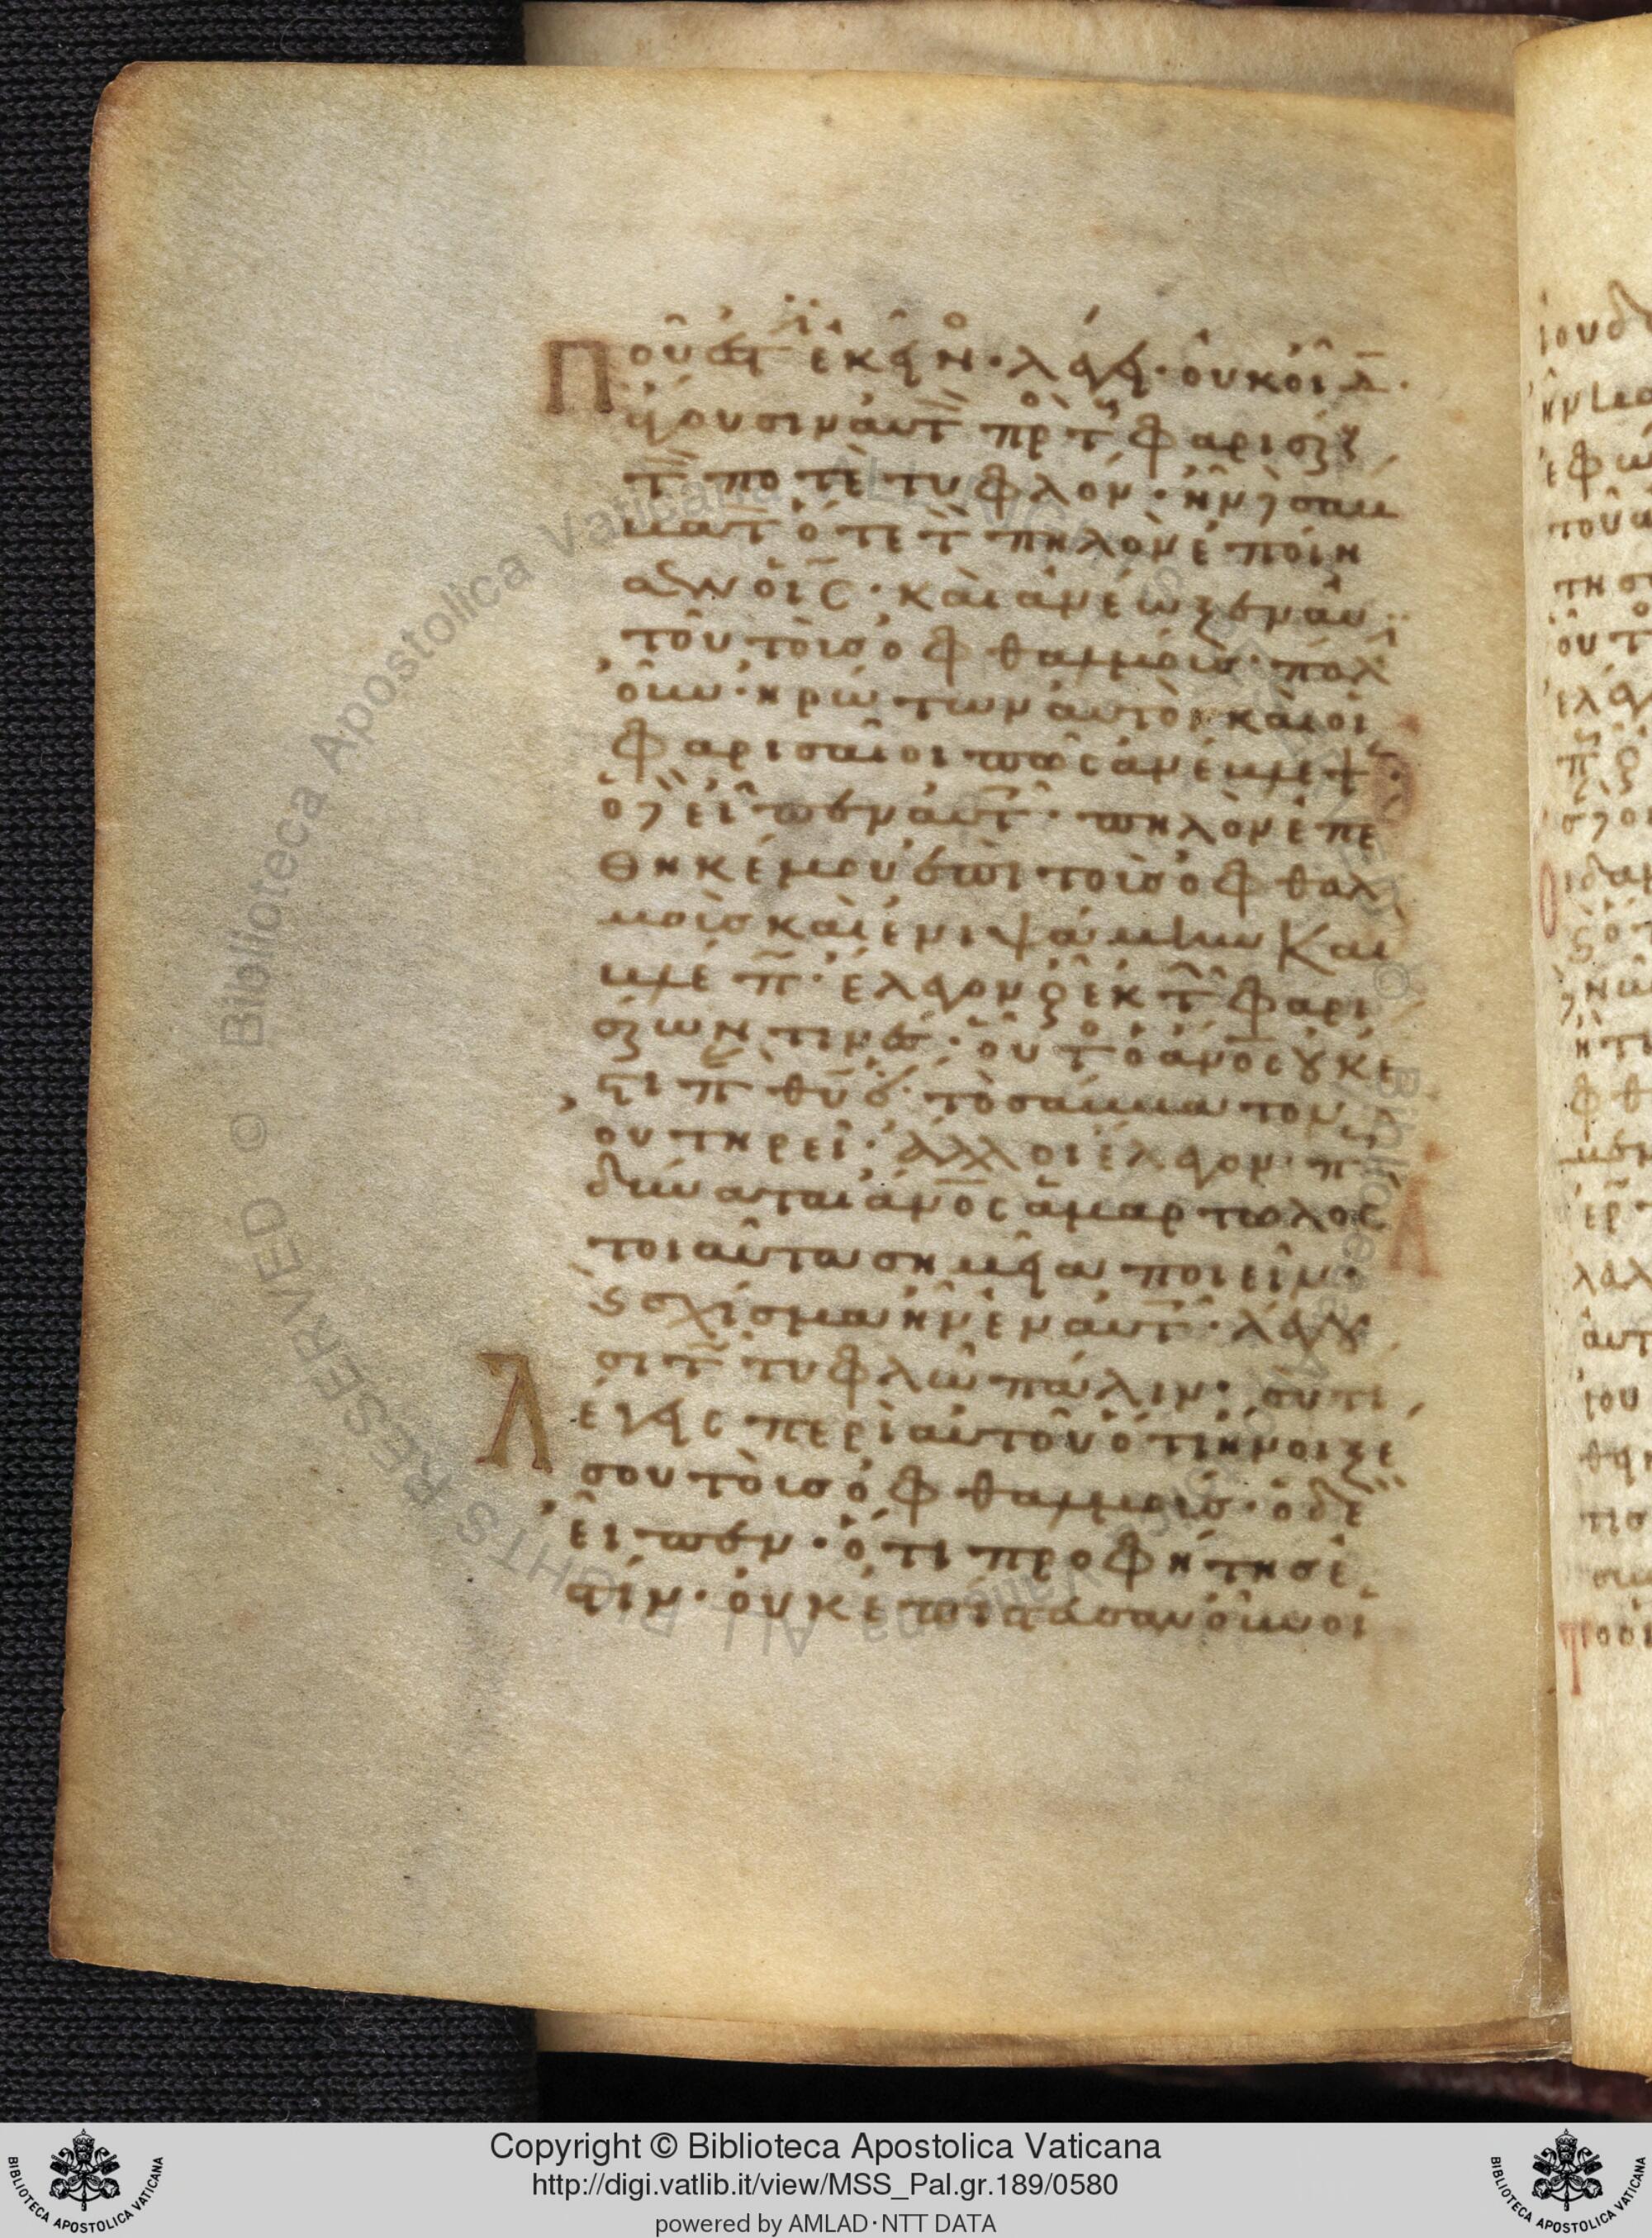 Ποῦ ἐστὶν ἐκεῖνος· λέγει· οὐκ οἶδα·
ἄγουσιν αὐτὸν πρὸς τοὺς φαρισαίους
τόν ποτε τυφλόν· ἦν δὲ σάβ
βατον ὅτε τὸν πηλὸν ἐποίη
σεν ὁ ις· καὶ ἀνέωξεν αὐ
τοῦ τοὺς ὀφθαλμούς· πάλιν
οὖν ἠρώτων αὐτὸν καὶ οἱ
φαρισαῖοι πῶς ἀνέβλεψεν·
ὁ δὲ εἶπεν αὐτοῖς· πηλὸν ἐπέ
θηκέ μου ἐπὶ τοὺς ὀφθαλ
μοὺς καὶ ἐνιψάμην καὶ
βλέπω· ἔλεγον οὖν ἐκ τῶν φαρι
σαίων τινές· οὗτος ὁ ανος οὐκ ἔ
στι παρὰ θυ ὅτι τὸ σάββατον
οὐ τηρεῖ· ἄλλοι ἔλεγον· πῶς
δύναται ανος ἁμαρτωλὸς
τοιαῦτα σημεῖα ποιεῖν·
καὶ σχίσμα ἦν ἐν αὐτοῖς· λέγου
σι τῷ τυφλῷ πάλιν· σὺ τί
λέγεις περὶ αὐτοῦ ὅτι ἤνοιξέ
σου τοὺς ὀφθαλμούς· ὁ δὲ
εἶπεν· ὅτι προφήτης ἐ
στίν· οὐκ ἐπίστευσαν οὖν οἱ
Copyright © Biblioteca Apostolica Vaticana
http://digi.vatlib.it/view/MSS_Pal.gr.189/0580
powered by AMLAD·NTT DATA
BIBLIOTECA APOSTOLICA VATICANA
BIBLIOTECA APOSTOLICA VATICANA